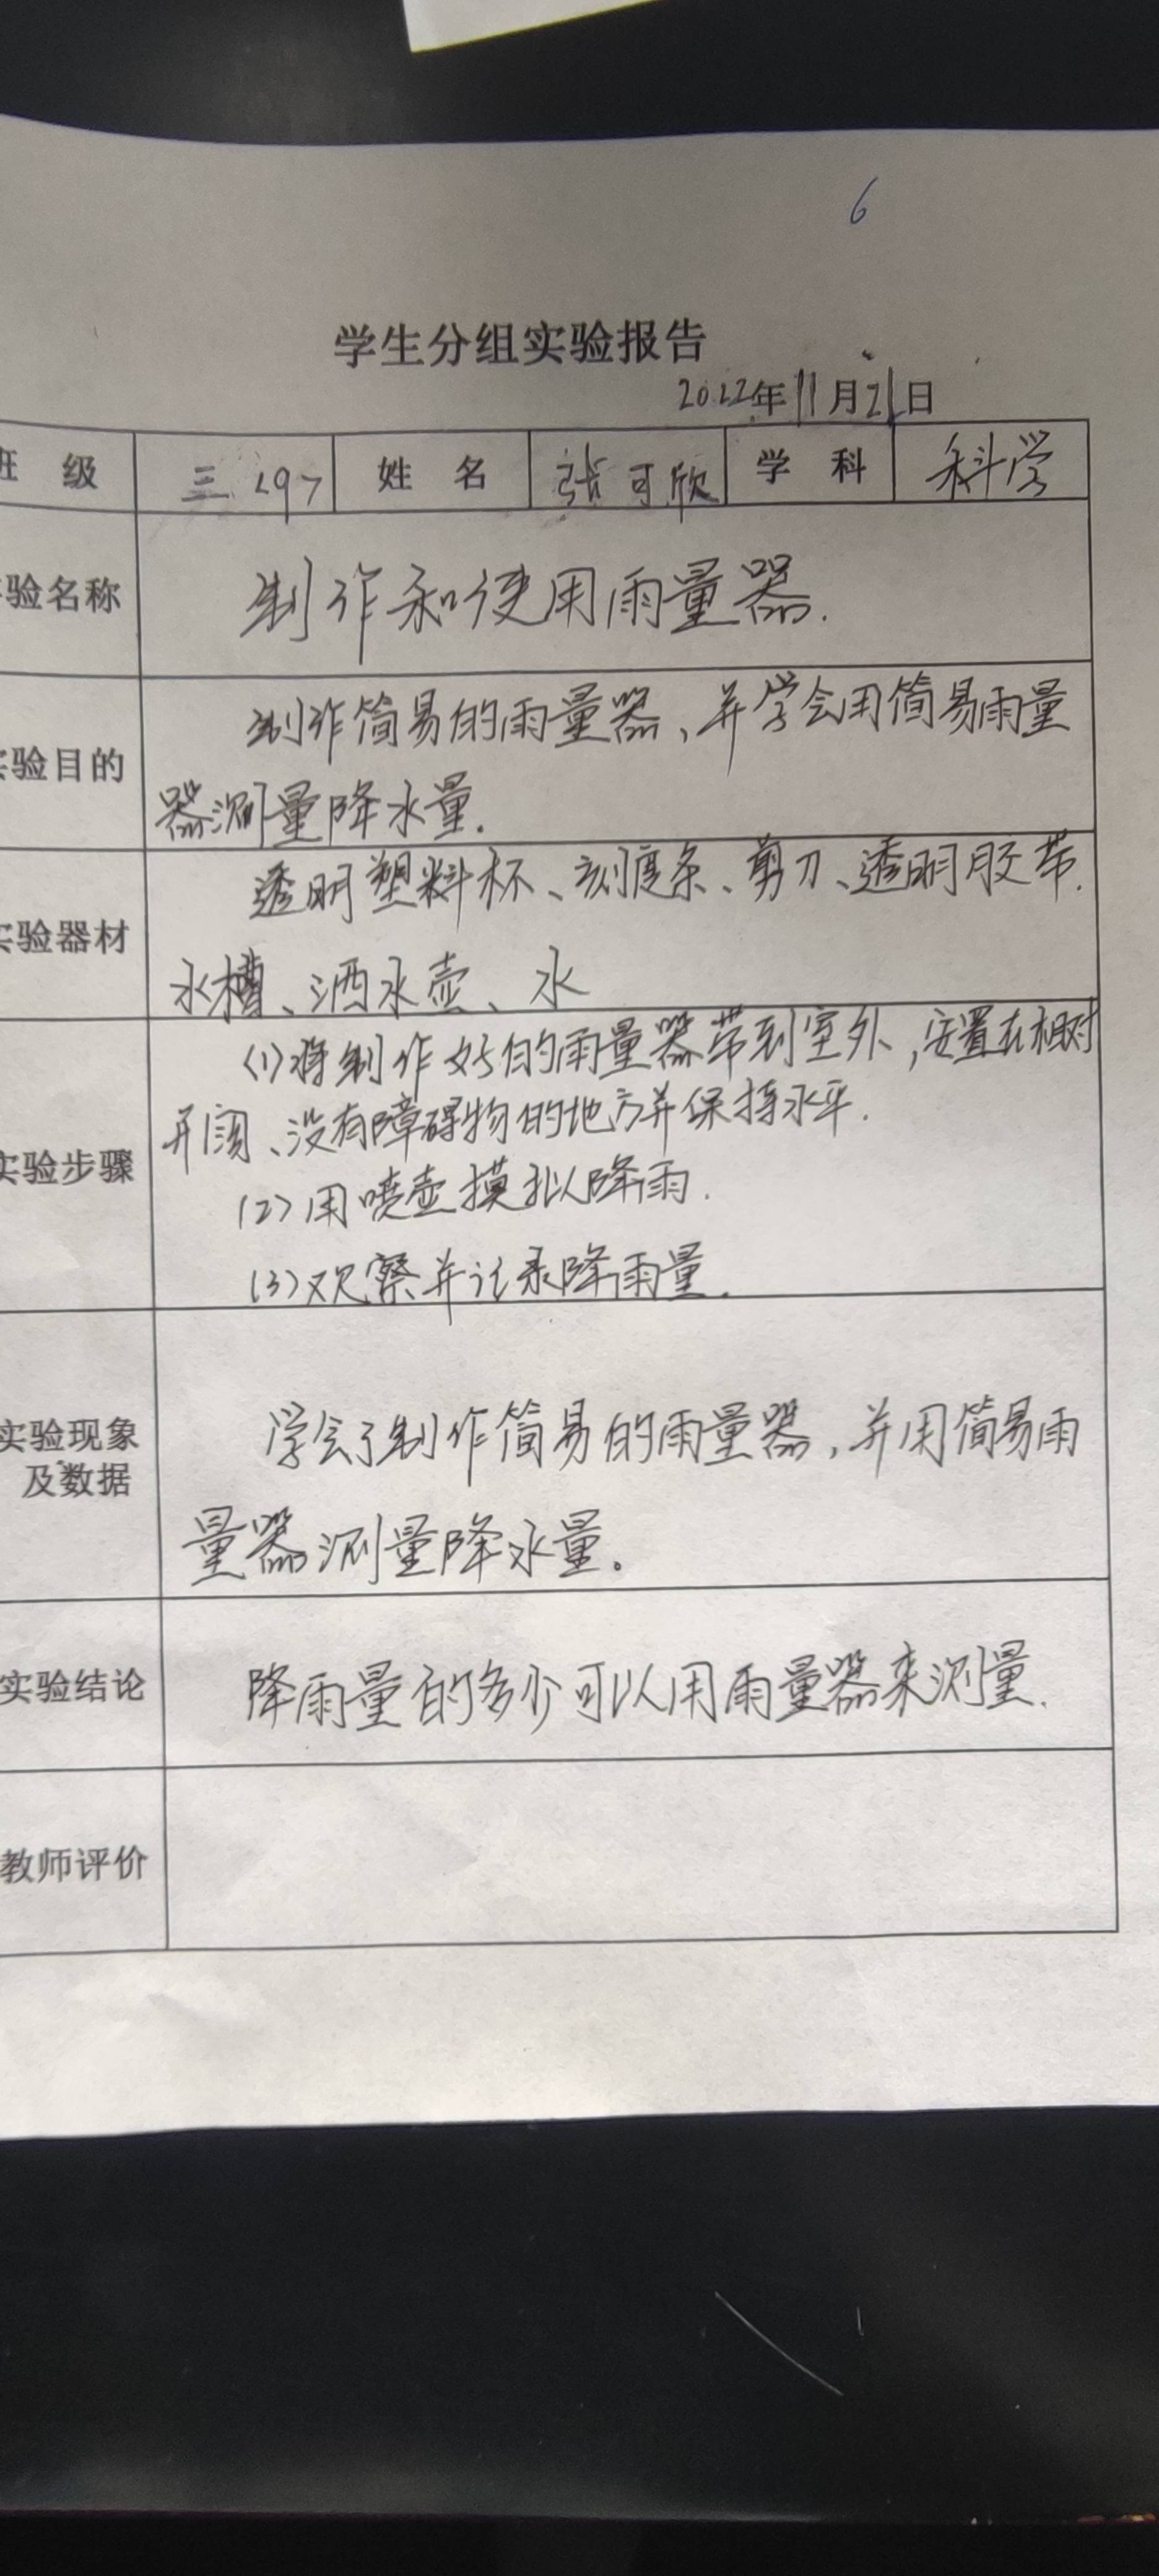 6
学生分组实验报告
2022年11月21日
班 级 三<9> 姓 名 张可欣 学 科 科学
验名称 制作和使用雨量器.
实验目的 制作简易的雨量器、并学会用简易雨量
器测量降水量.
实验器材 透明塑料杯、刻度条、剪刀、透明胶带.
水槽、洒水壶、水
实验步骤 (1)将制作好的雨量器带到室外,安置在相对
开阔、没有障碍物的地方并保持水平.
(2)用喷壶摸拟降雨.
(3)观察并记录降雨量.
实验现象
及数据 学会了制作简易的雨量器,并用简易雨
量器测量降水量。
实验结论 降雨量的多少可以用雨量器来测量.
教师评价